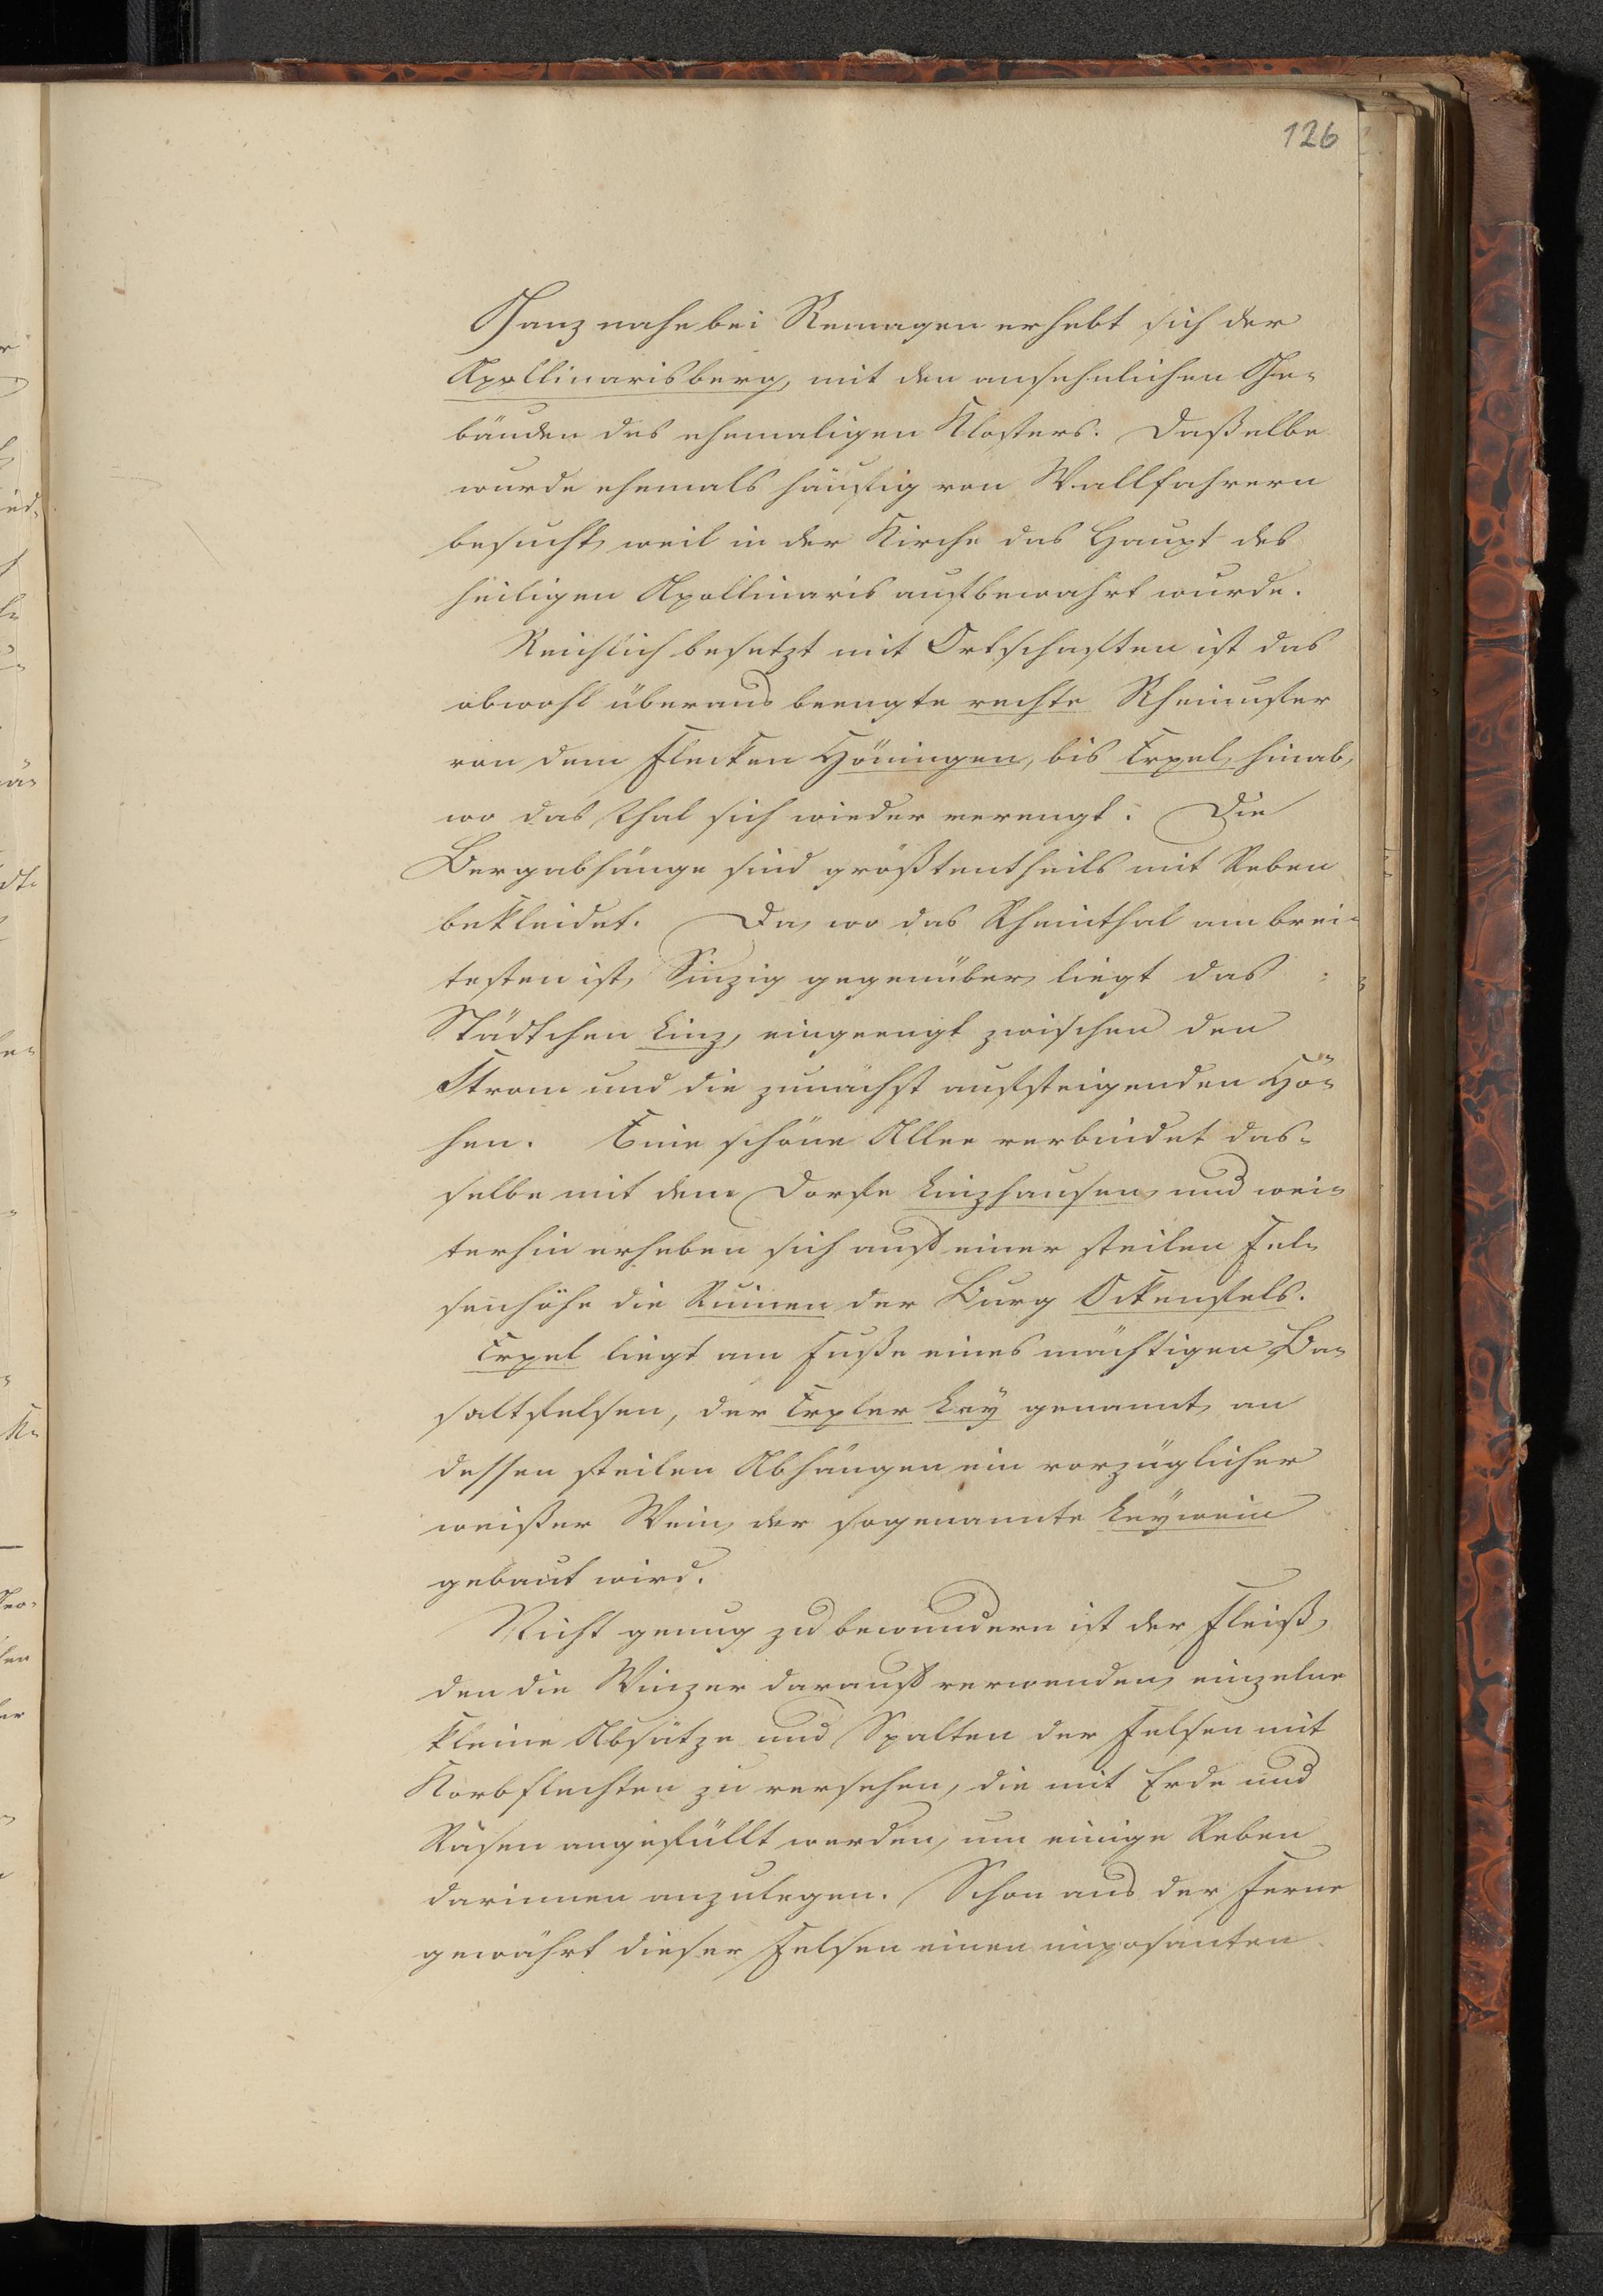 126
Ganz nahe bei Remagen erhebt sich der
Apollinarisberg, mit den ansehnlichen Ge-
bäuden des ehemaligen Klosters. Daßelbe
wurde ehemals häufig von Wallfahrern
besucht, weil in der Kirche das Haupt des
heiligen Apollinaris aufbewahrt wurde.
Reichlich besetzt mit Ortschaften ist das
obwohl überaus beengte rechte Rheinufer
von dem Flecken Höningen, bis Erpel, hinab,
wo das Thal sich wieder verengt. Die
Bergabhänge sind größtentheils mit Reben
bekleidet. Da, wo das Rheinthal am brei-
testen ist, Sinzig gegenüber, liegt das
Städtchen Linz, eingeengt zwischen den
Strom und die zunächst aufsteigenden Hö-
hen. Eine schöne Allee verbindet das-
selbe mit dem Dorfe Linzhausen, und wei-
terhin erheben sich auf einer steilen Fel-
senhöhe die Ruinen der Burg Ockenfels.
Erpel liegt am Fuße eines mächtigen Ba-
saltfelsen, der Erpler Ley genannt, an
dessen steilen Abhängen ein vorzüglicher
weißer Wein, der sogenannte Leywein
gebaut wird.
Nicht genug zu bewundern ist der Fleiß,
den die Winzer darauf verwenden, einzelne
kleine Absätze und Spalten der Felsen mit
Korbflechten zu versehen, die mit Erde und
Rasen angefüllt werden, um einige Reben
darinnen anzulegen. Schon aus der Ferne
gewährt dieser Felsen einen imposanten